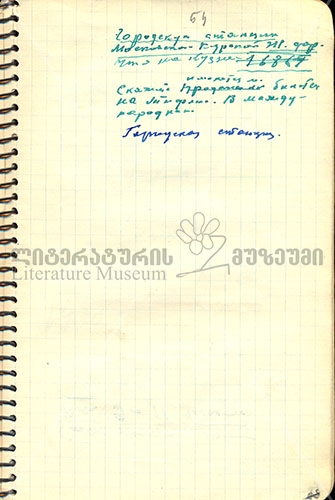 54
Городская станция
Московско-Курской ж. дор.
что на Кузне 
имеется
билетов
на Тифлис. В между-
народном.
Городская станция.
ლიტერატურის მუზეუმი
Literature Museum